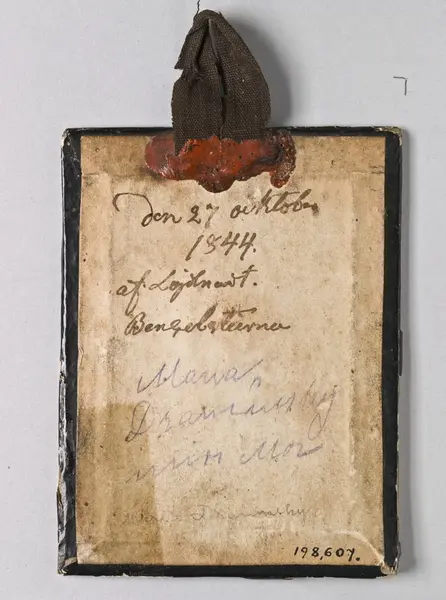 Den 27 october
1844.
af. Löjtnant.
Bengelstierna
Maria
min Mor
198,607.